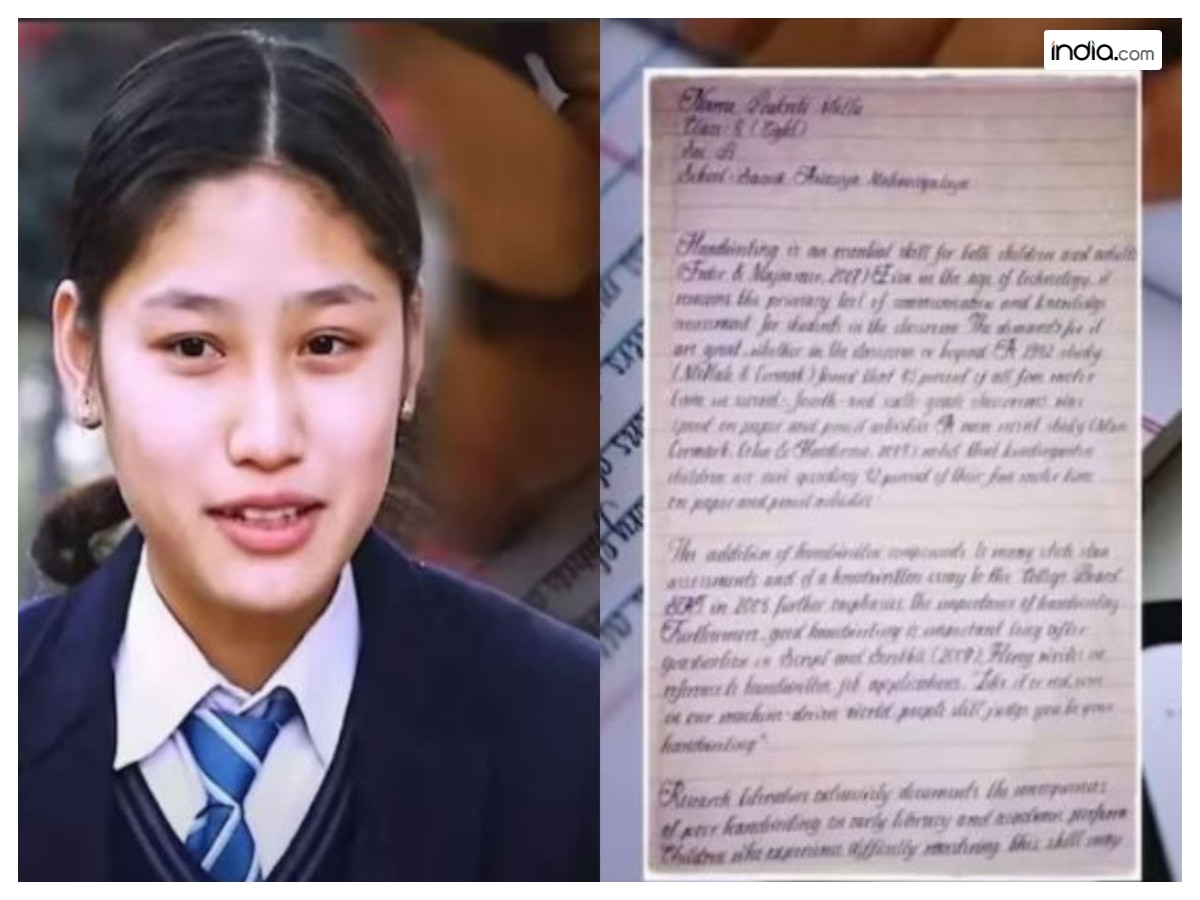 india.com
Name Prakriti Malla
Class: 8 (Eight)
Sec: A
School- Sainik Awasiya Mahavidyalaya
Handwriting is an essential skill for both children and adults
(Feder & Majnemer, 2007) Even in the age of technology, it
remains the primary tool of communication and knowledge
assessment for students in the classroom The demands for it
are great, whether in the classroom or beyond A 1992 study
(McHale & Cermak) found that 85 percent of all fine motor
time in second- fourth- and sixth- grade classrooms was
spent on paper and pencil activities A more recent study (Mar
Cermark, Cohn & Henderson, 2003) noted that kindergarten
children are now spending 42 percent of their fine motor time
on paper and pencil activities
The addition of handwritten components to many state
assessments and of a handwritten essay to the College Board
SAT in 2005 further emphasises the importance of handwriting
Furthermore, good handwriting is important long after
graduation in Script and Scribble (2009), Florey writes in
reference to handwritten job applications, "Like it or not, even
in our machine-driven world, people still judge you by your
handwriting"
Research literature extensively documents the consequences
of poor handwriting on early literacy and academic perform
Children who experience difficulty mastering this skill may